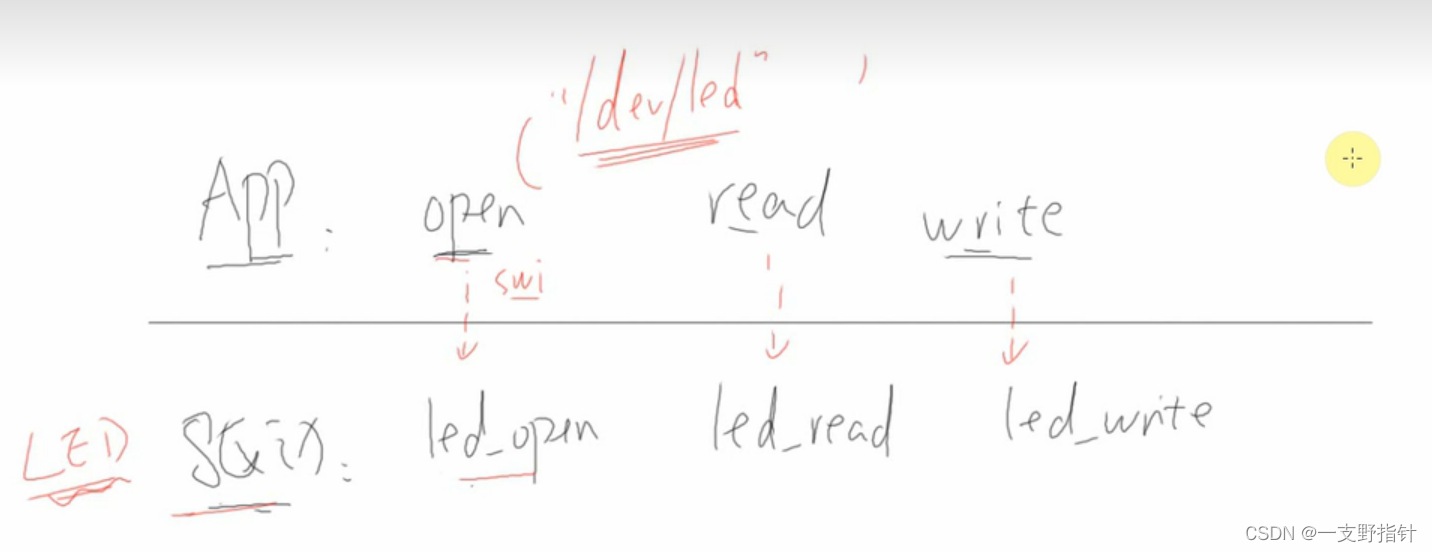 ("/dev/led" ,
App: open read write
swi
LED 驱动: led_open led_read led_write
CSDN @一支野指针